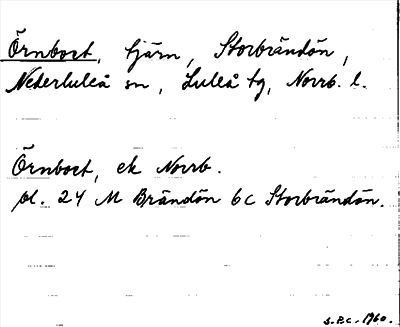 Örnboet, tjärn, Storbrändön,
Nederluleå sn, Luleå tg, Norrb. l.
Örnboet, ek Norrb.
pl. 24 M Brändön 6c Storbrändön.
S.P.C. 1960.